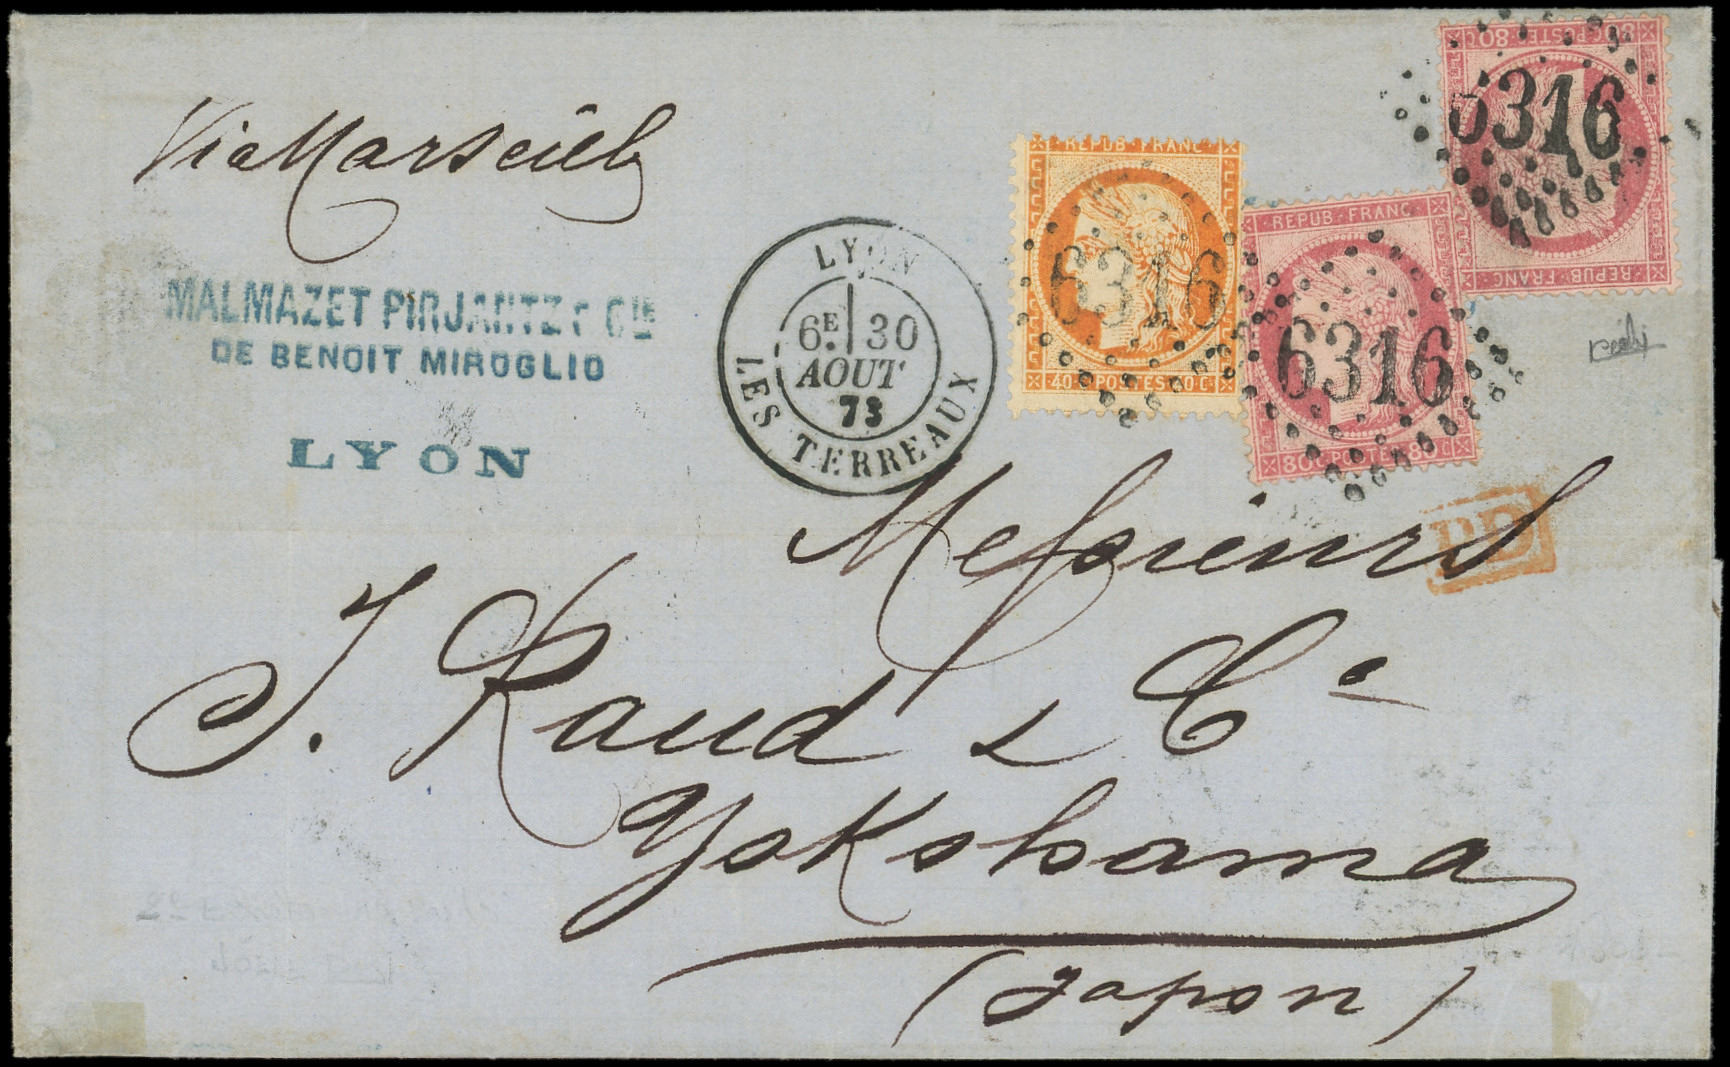 Via Marseille
MALMAZET PIRJANTZ & CIE
DE BENOIT MIROGLIO
LYON
LYON
6E 30
AOUT
73
LES TERREAUX
REPUB·FRANC
6316
40·C·POSTES·40·C
REPUB·FRANC
6316
80C·POSTES·80C
80C·POSTES·80C
6316
REPUB·FRANC
PD
Messieurs
J. Raud & Cie
Yokohama
(Japon)